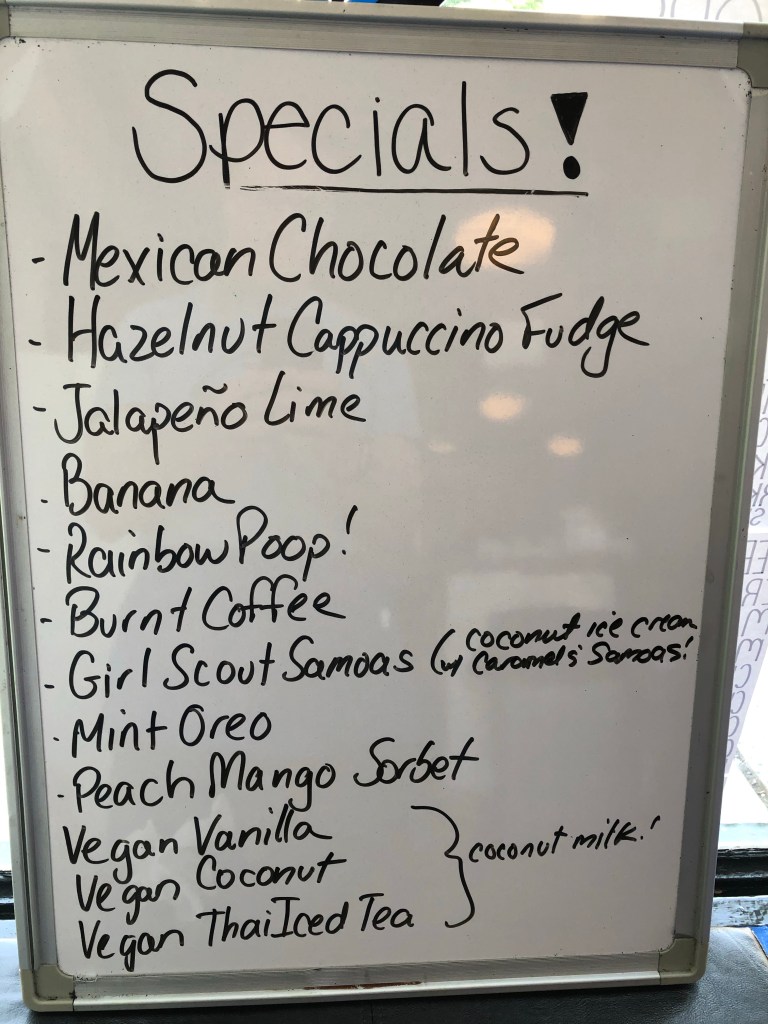 Specials!
- Mexican Chocolate
- Hazelnut Cappuccino Fudge
- Jalapeño Lime
- Banana
- Rainbow Poop!
- Burnt Coffee
- Girl Scout Samoas (coconut ice cream
w/ Caramel & Samoas!
- Mint Oreo
- Peach Mango Sorbet
Vegan Vanilla
Vegan Coconut } coconut milk!
Vegan Thai Iced Tea